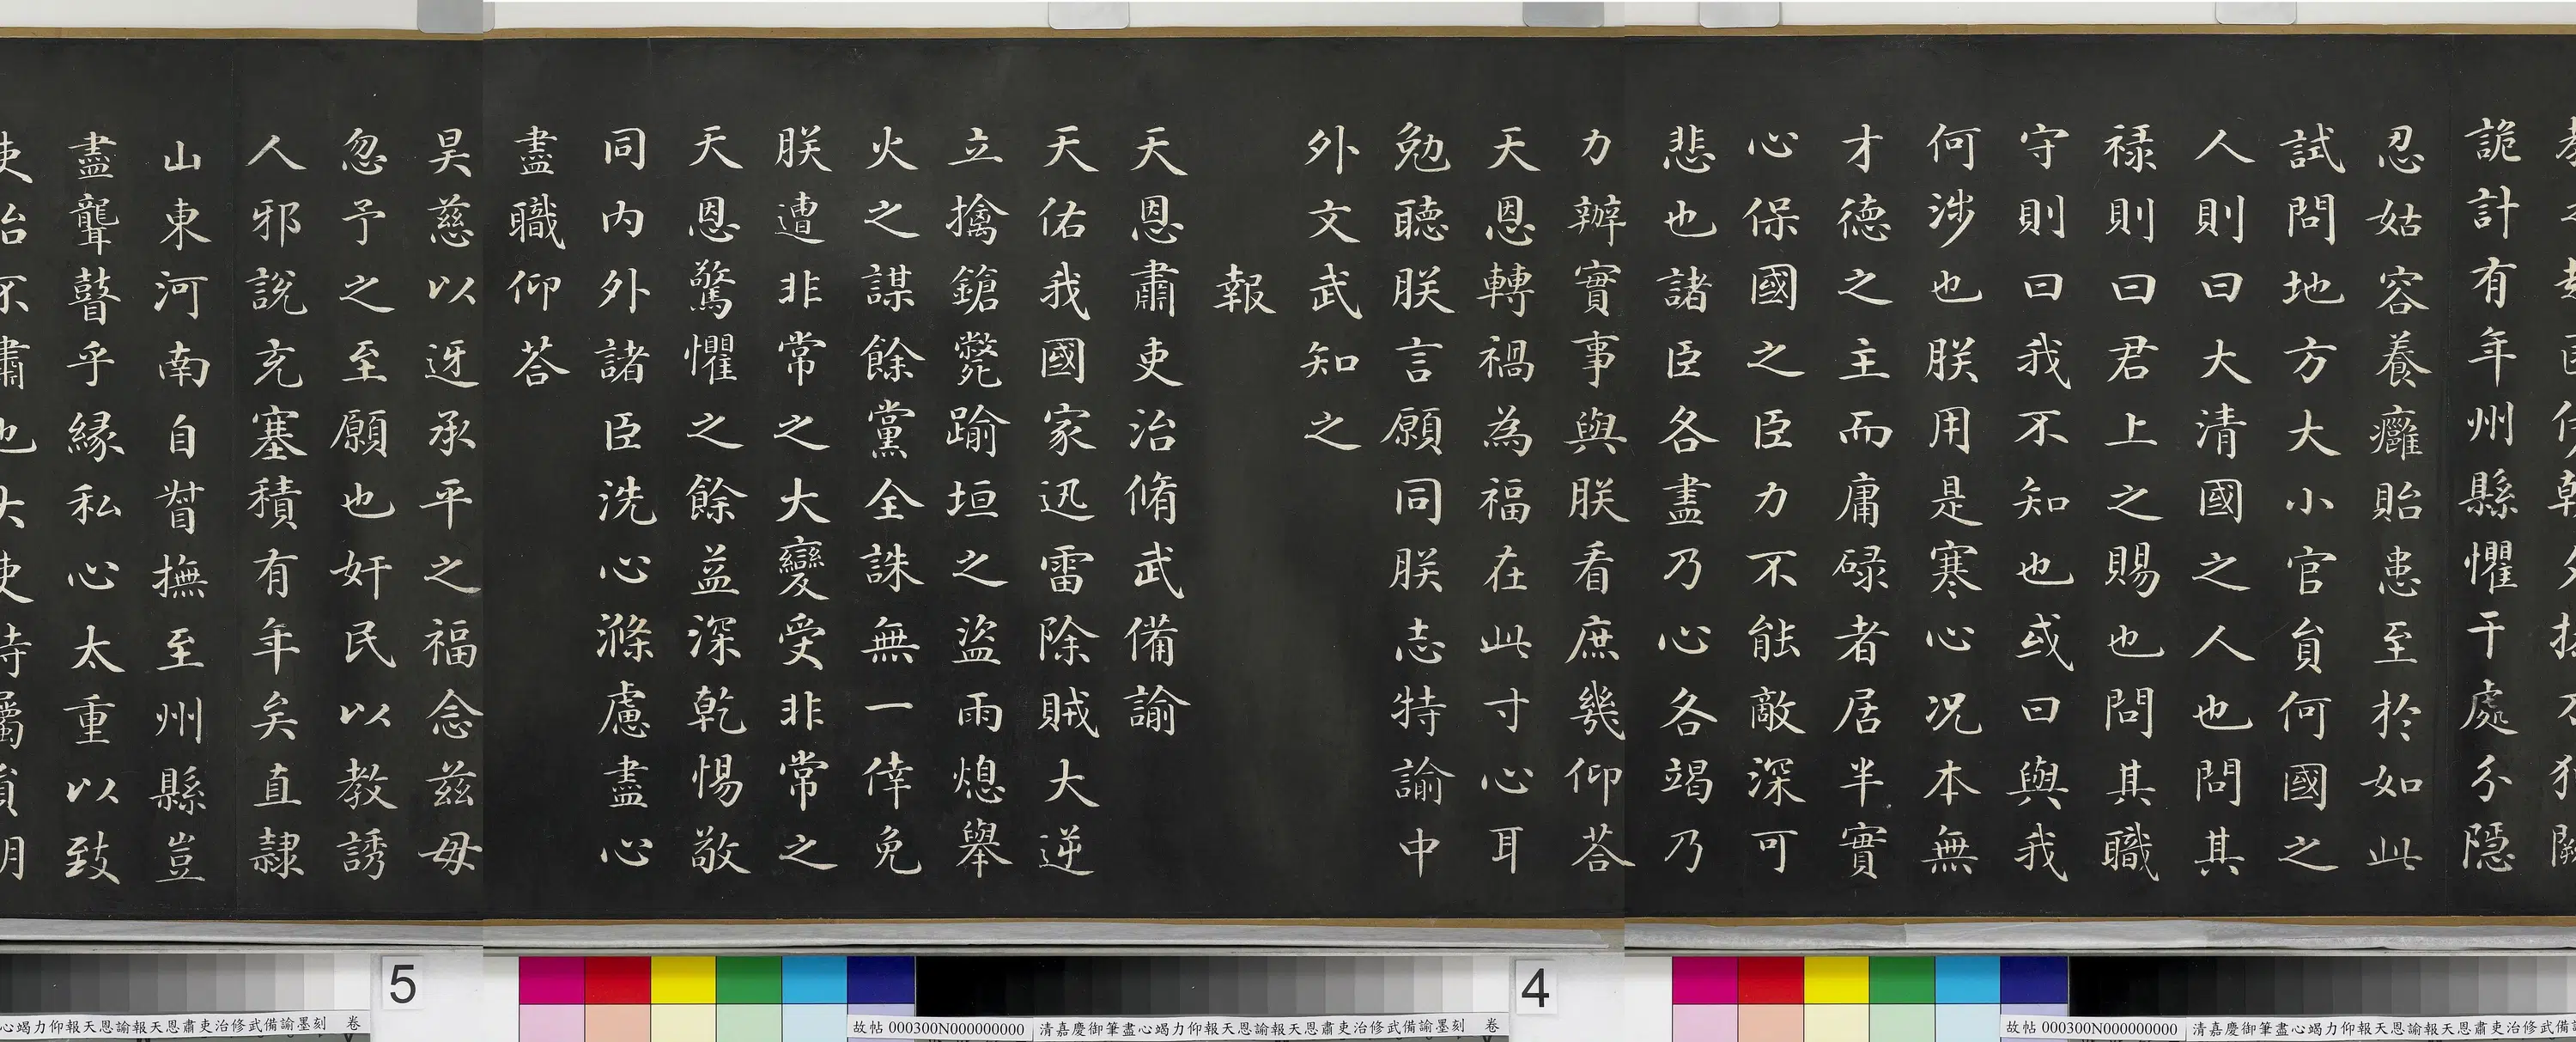 詭計有年州縣懼干處分隱
忍姑容養癰貽患至於如此
試問地方大小官員何國之
人則曰大清國之人也問其
祿則曰君上之賜也問其職
守則曰我不知也或曰與我
何涉也朕用是寒心况本無
才德之主而庸碌者居半實
心保國之臣力不能敵深可
悲也諸臣各盡乃心各竭乃
力辦實事與朕看庶幾仰荅
天恩轉禍為福在此寸心耳
勉聽朕言願同朕志特諭中
外文武知之
報
天恩肅吏治脩武備諭
天佑我國家迅雷除賊大逆
立擒鎗斃踰垣之盜雨熄舉
火之謀餘黨全誅無一倖免
朕遭非常之大變受非常之
天恩驚懼之餘益深乾惕敬
同内外諸臣洗心滌慮盡心
盡職仰荅
昊慈以迓承平之福念兹毋
忽予之至願也奸民以教誘
人邪說充塞積有年矣直隸
山東河南自督撫至州縣豈
盡聾瞽乎緣私心太重以致
吏治不肅也大吏待屬員明
5
心竭力仰報天恩諭報天恩肅吏治修武備諭墨刻 卷
4
故帖 000300N000000000 清嘉慶御筆盡心竭力仰報天恩諭報天恩肅吏治修武備諭墨刻 卷
故帖 000300N000000000 清嘉慶御筆盡心竭力仰報天恩諭報天恩肅吏治修武備